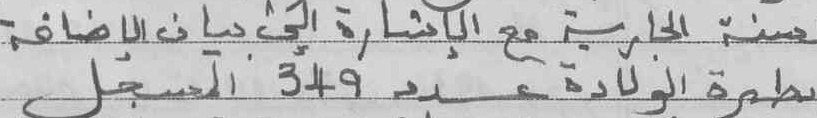 سنة الجارية مع الإشارة إلى بيان الإضافة
بطرة الولادة عدد 349 المسجل